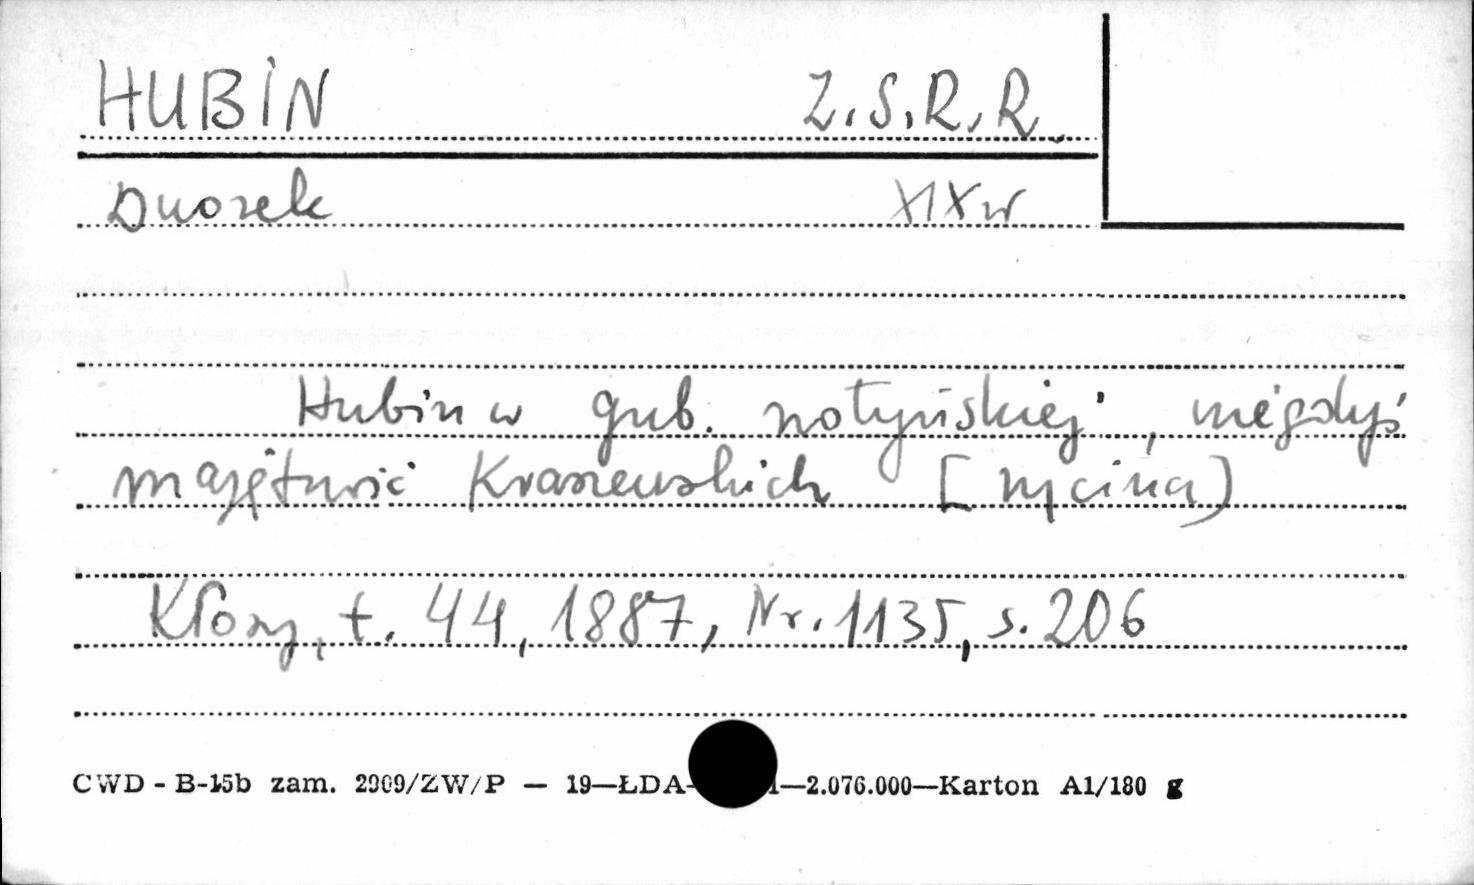 HUBIN Z.S.R.R.
Dworek XIX w
Hubin w gub. wołyńskiej, niegdyś
majętność Kraszewskich [rycina)
Kłosy, t. 44, 1887, Nr. 1135, s. 206
CWD - B-15b zam. 2909/ZW/P — 19—ŁDA- —2.076.000—Karton A1/180 g